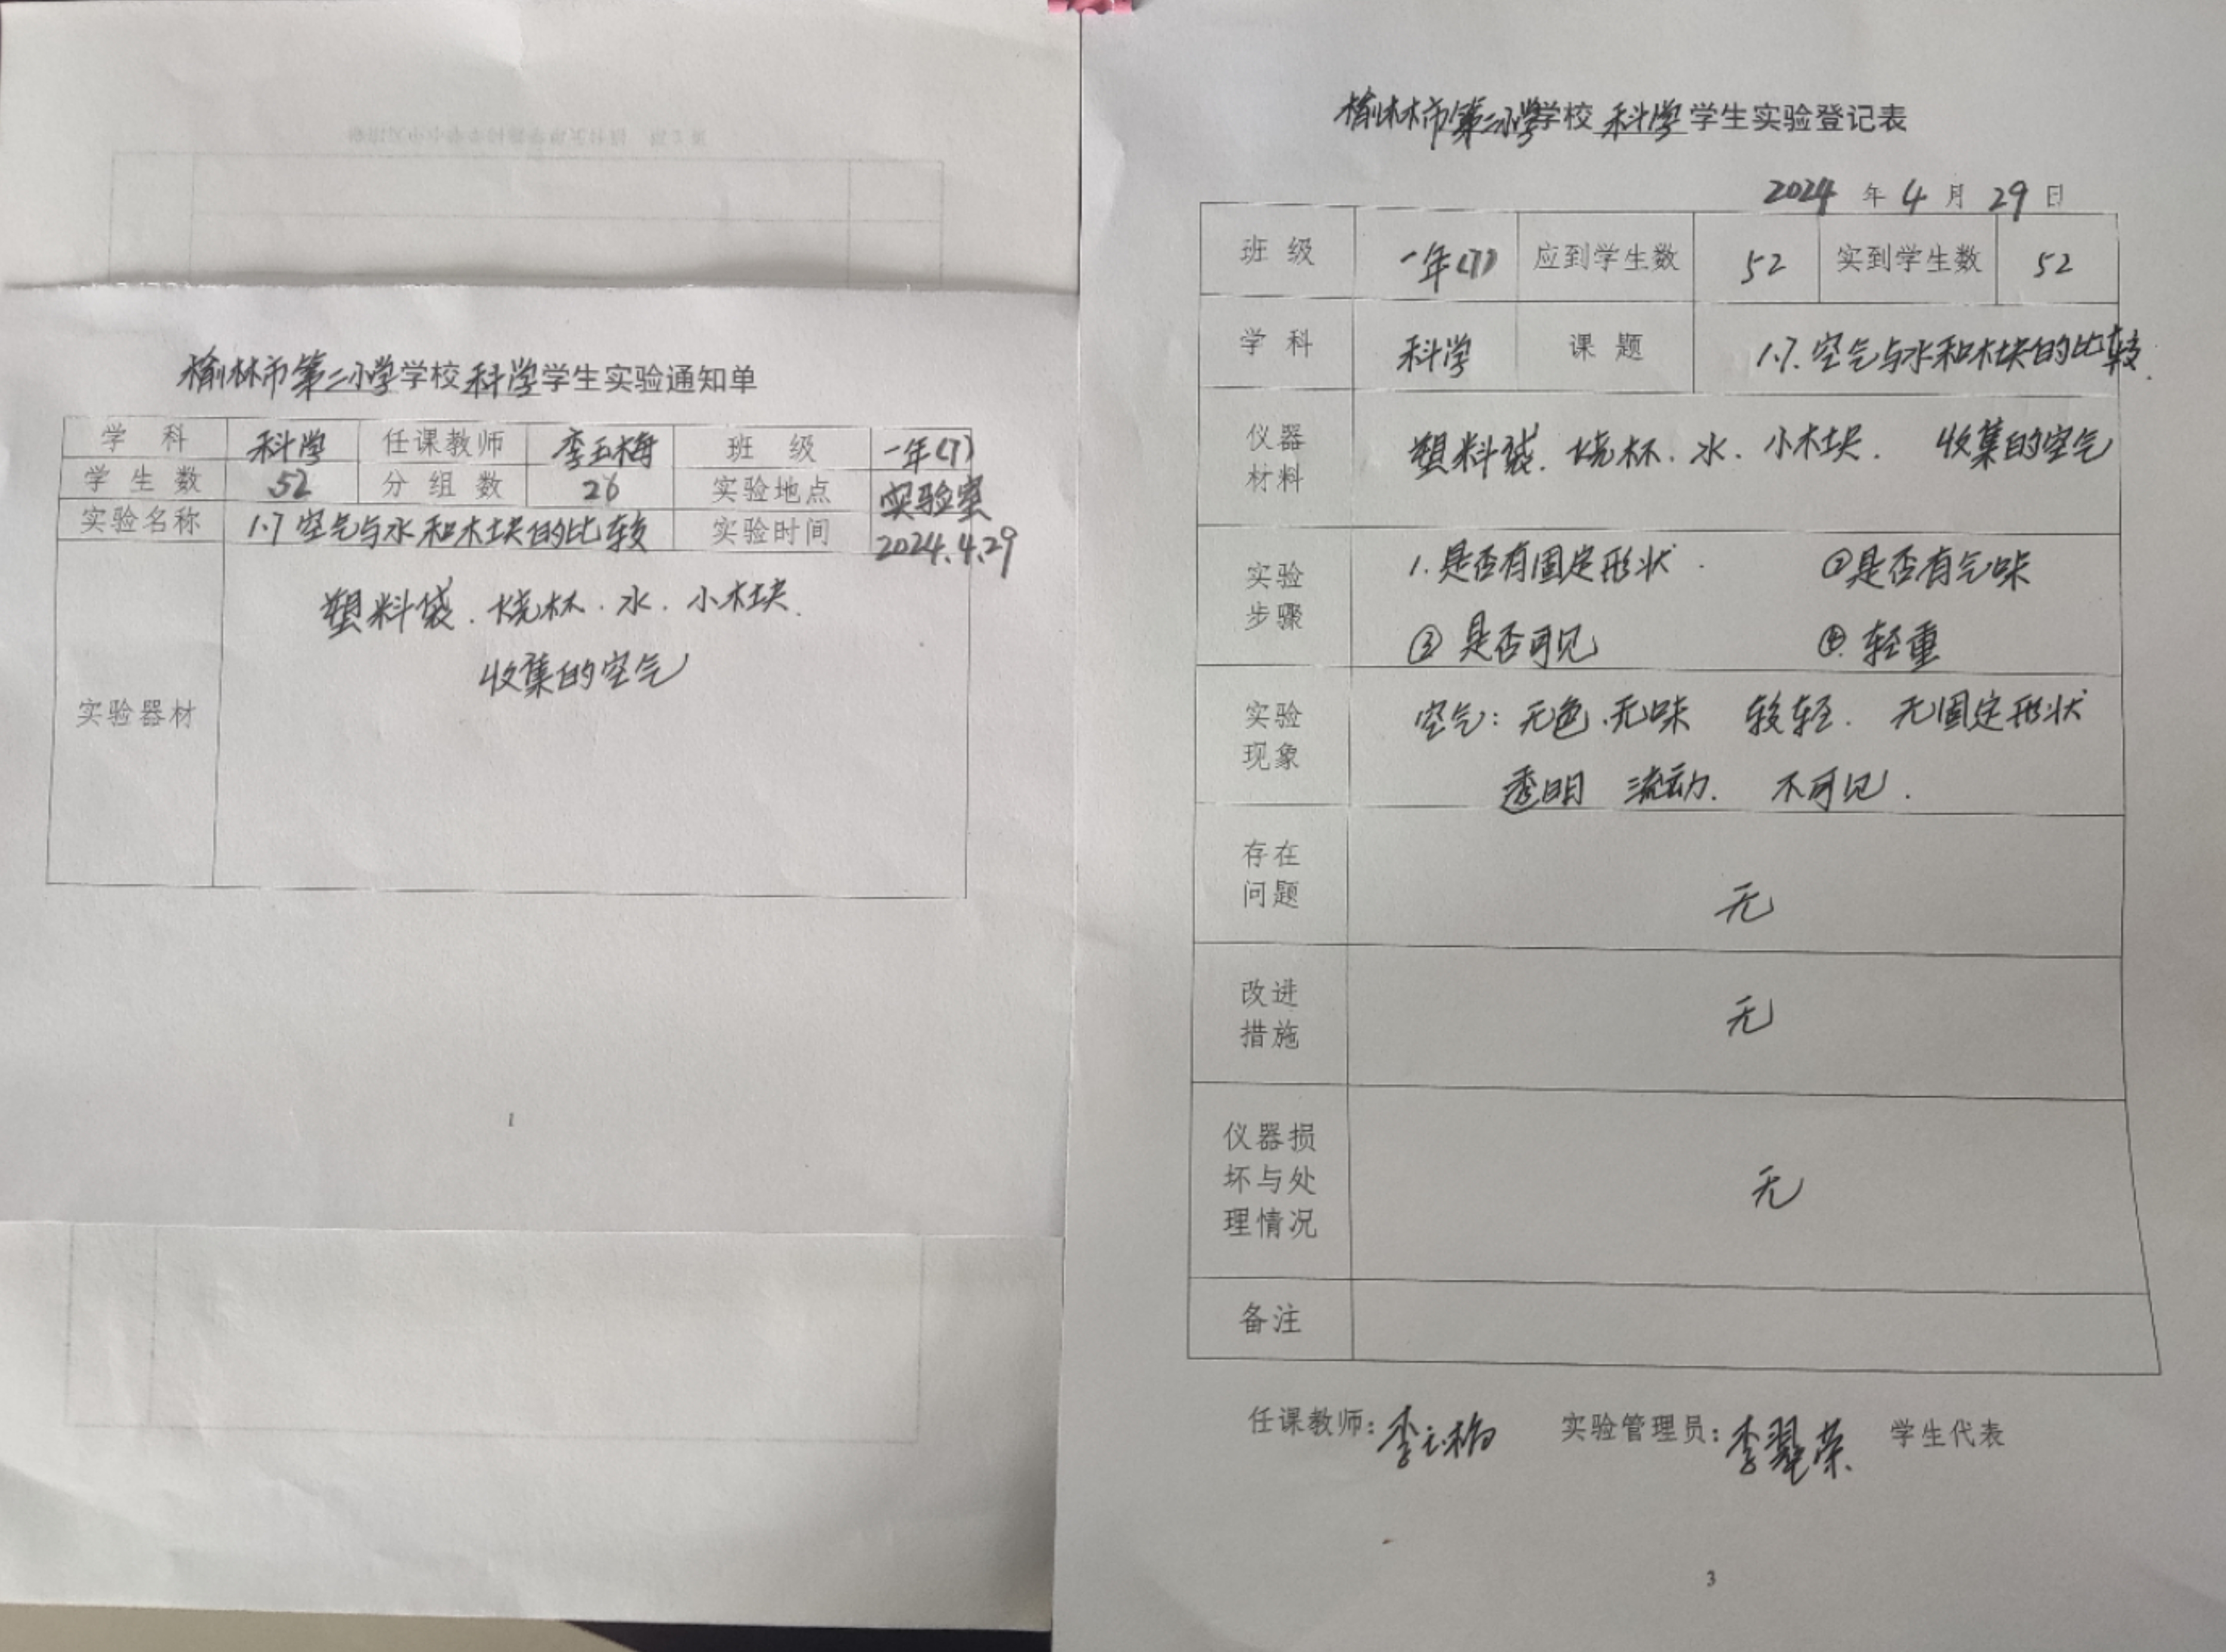 榆林市第二小学学校科学学生实验通知单
学 科 科学 任课教师 李玉梅 班 级 一年(7)
学 生 数 52 分 组 数 26 实验地点 实验室
实验名称 1.7 空气与水和木块的比较 实验时间 2024.4.29
实验器材
塑料袋.烧杯.水.小木块.
收集的空气
1
榆林市第二小学学校 科学 学生实验登记表
2024 年 4 月 29 日
班 级 一年(7) 应到学生数 52 实到学生数 52
学 科 科学 课 题 1.7.空气与水和木块的比较.
仪器
材料
塑料袋.烧杯.水.小木块. 收集的空气
实验
步骤
1.是否有固定形状. ②是否有气味
③是否可见 ④.轻重
实验
现象
空气:无色.无味 较轻. 无固定形状
透明 流动. 不可见.
存在
问题
无
改进
措施
无
仪器损
坏与处
理情况
无
备注
任课教师:李玉梅 实验管理员:李翠荣 学生代表
3